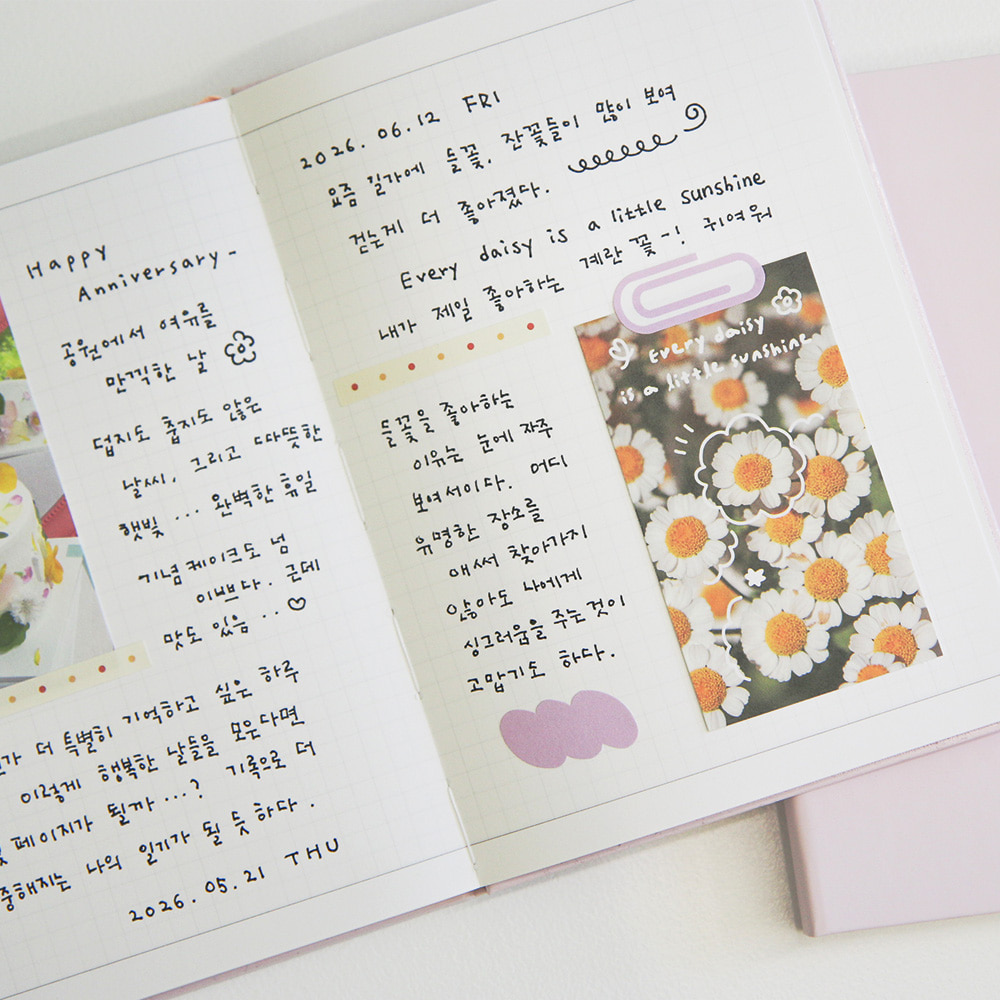 Happy
Anniversary-
공원에서 여유를
만끽한 날
덥지도 춥지도 않은
날씨, 그리고 따뜻한
햇빛 ... 완벽한 휴일
기념 케이크도 넘
이쁘다. 근데
맛도 있음 ...
더 특별히 기억하고 싶은 하루
이렇게 행복한 날들을 모은다면
페이지가 될까 ...? 기록으로 더
나의 일기가 될 듯 하다.
2026.05.21 THU
2026.06.12 FRI
요즘 길가에 들꽃, 잔꽃들이 많이 보여
걷는게 더 좋아졌다.
Every daisy is a little sunshine
내가 제일 좋아하는 계란 꽃-! 귀여워
들꽃을 좋아하는
이유는 눈에 자주
보여서이다. 어디
유명한 장소를
애써 찾아가지
않아도 나에게
싱그러움을 주는 것이
고맙기도 하다.
Every daisy
is a little sunshine